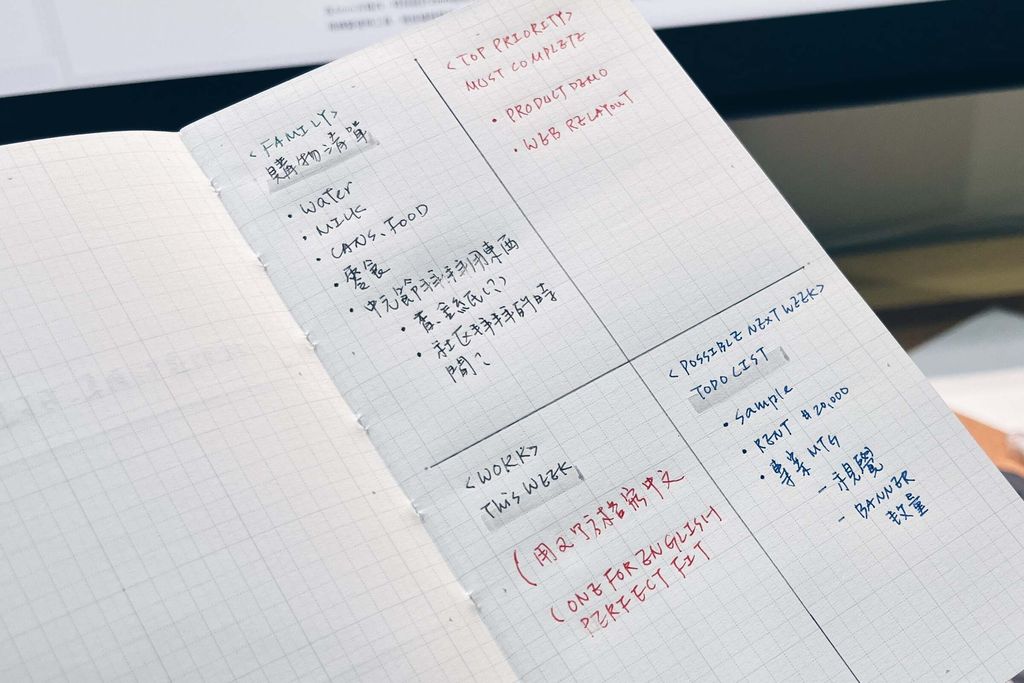 <FAMILY>
購物清單
• water
• MILK
• CANS、FOOD
• 零食
• 中元節拜拜用東西
• 查金紙(?)
• 社区拜拜的時
間?
<TOP PRIORITY>
MUST COMPLETE
• PRODUCT DEMO
• WEB RELAYOUT
<WORK>
THIS WEEK
(用2個字寫中文
(ONE FOR ENGLISH
PERFECT FIT
<POSSIBLE NEXT WEEK>
TODO LIST
• sample
• RENT $20,000
• 專案 MTG
- 視覺
- BANNER
数量